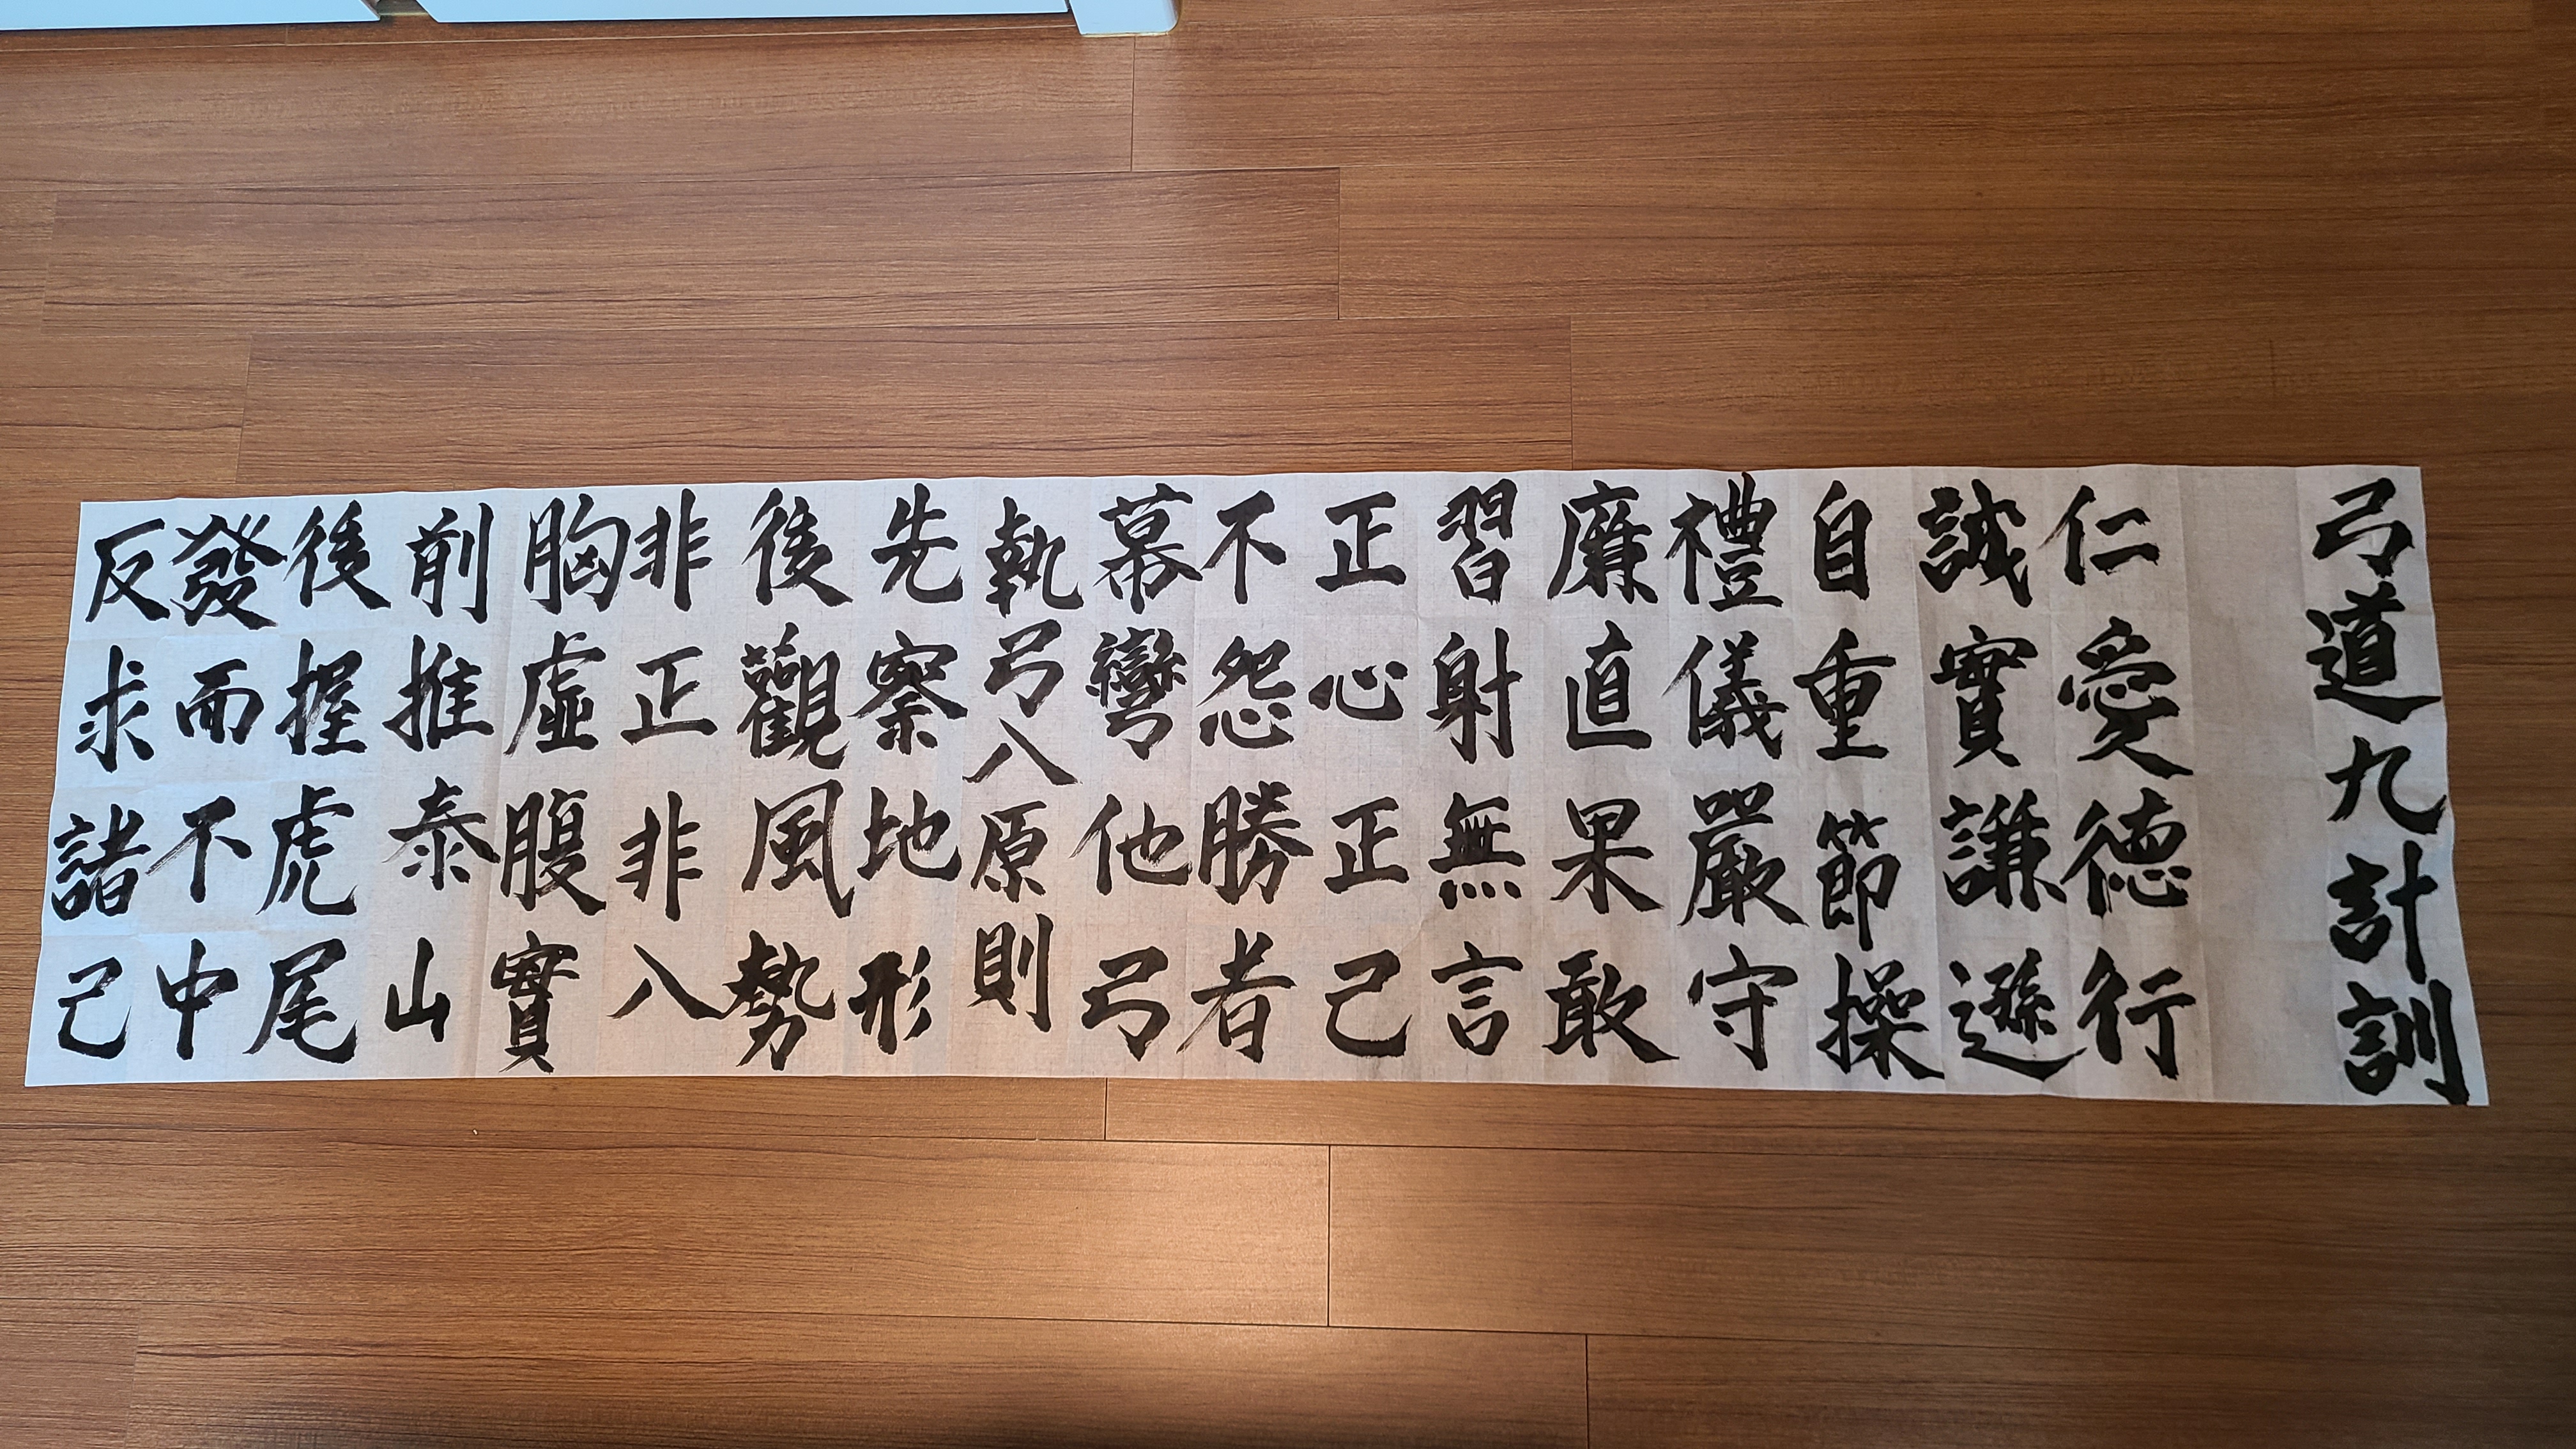 弓道九計訓
仁愛德行
誠實謙遜
自重節操
禮儀嚴守
廉直果敢
習射無言
正心正己
不怨勝者
幕彎他弓
執弓八原則
先察地形
後觀風勢
非正非八
胸虛腹實
前推泰山
後握虎尾
發而不中
反求諸己